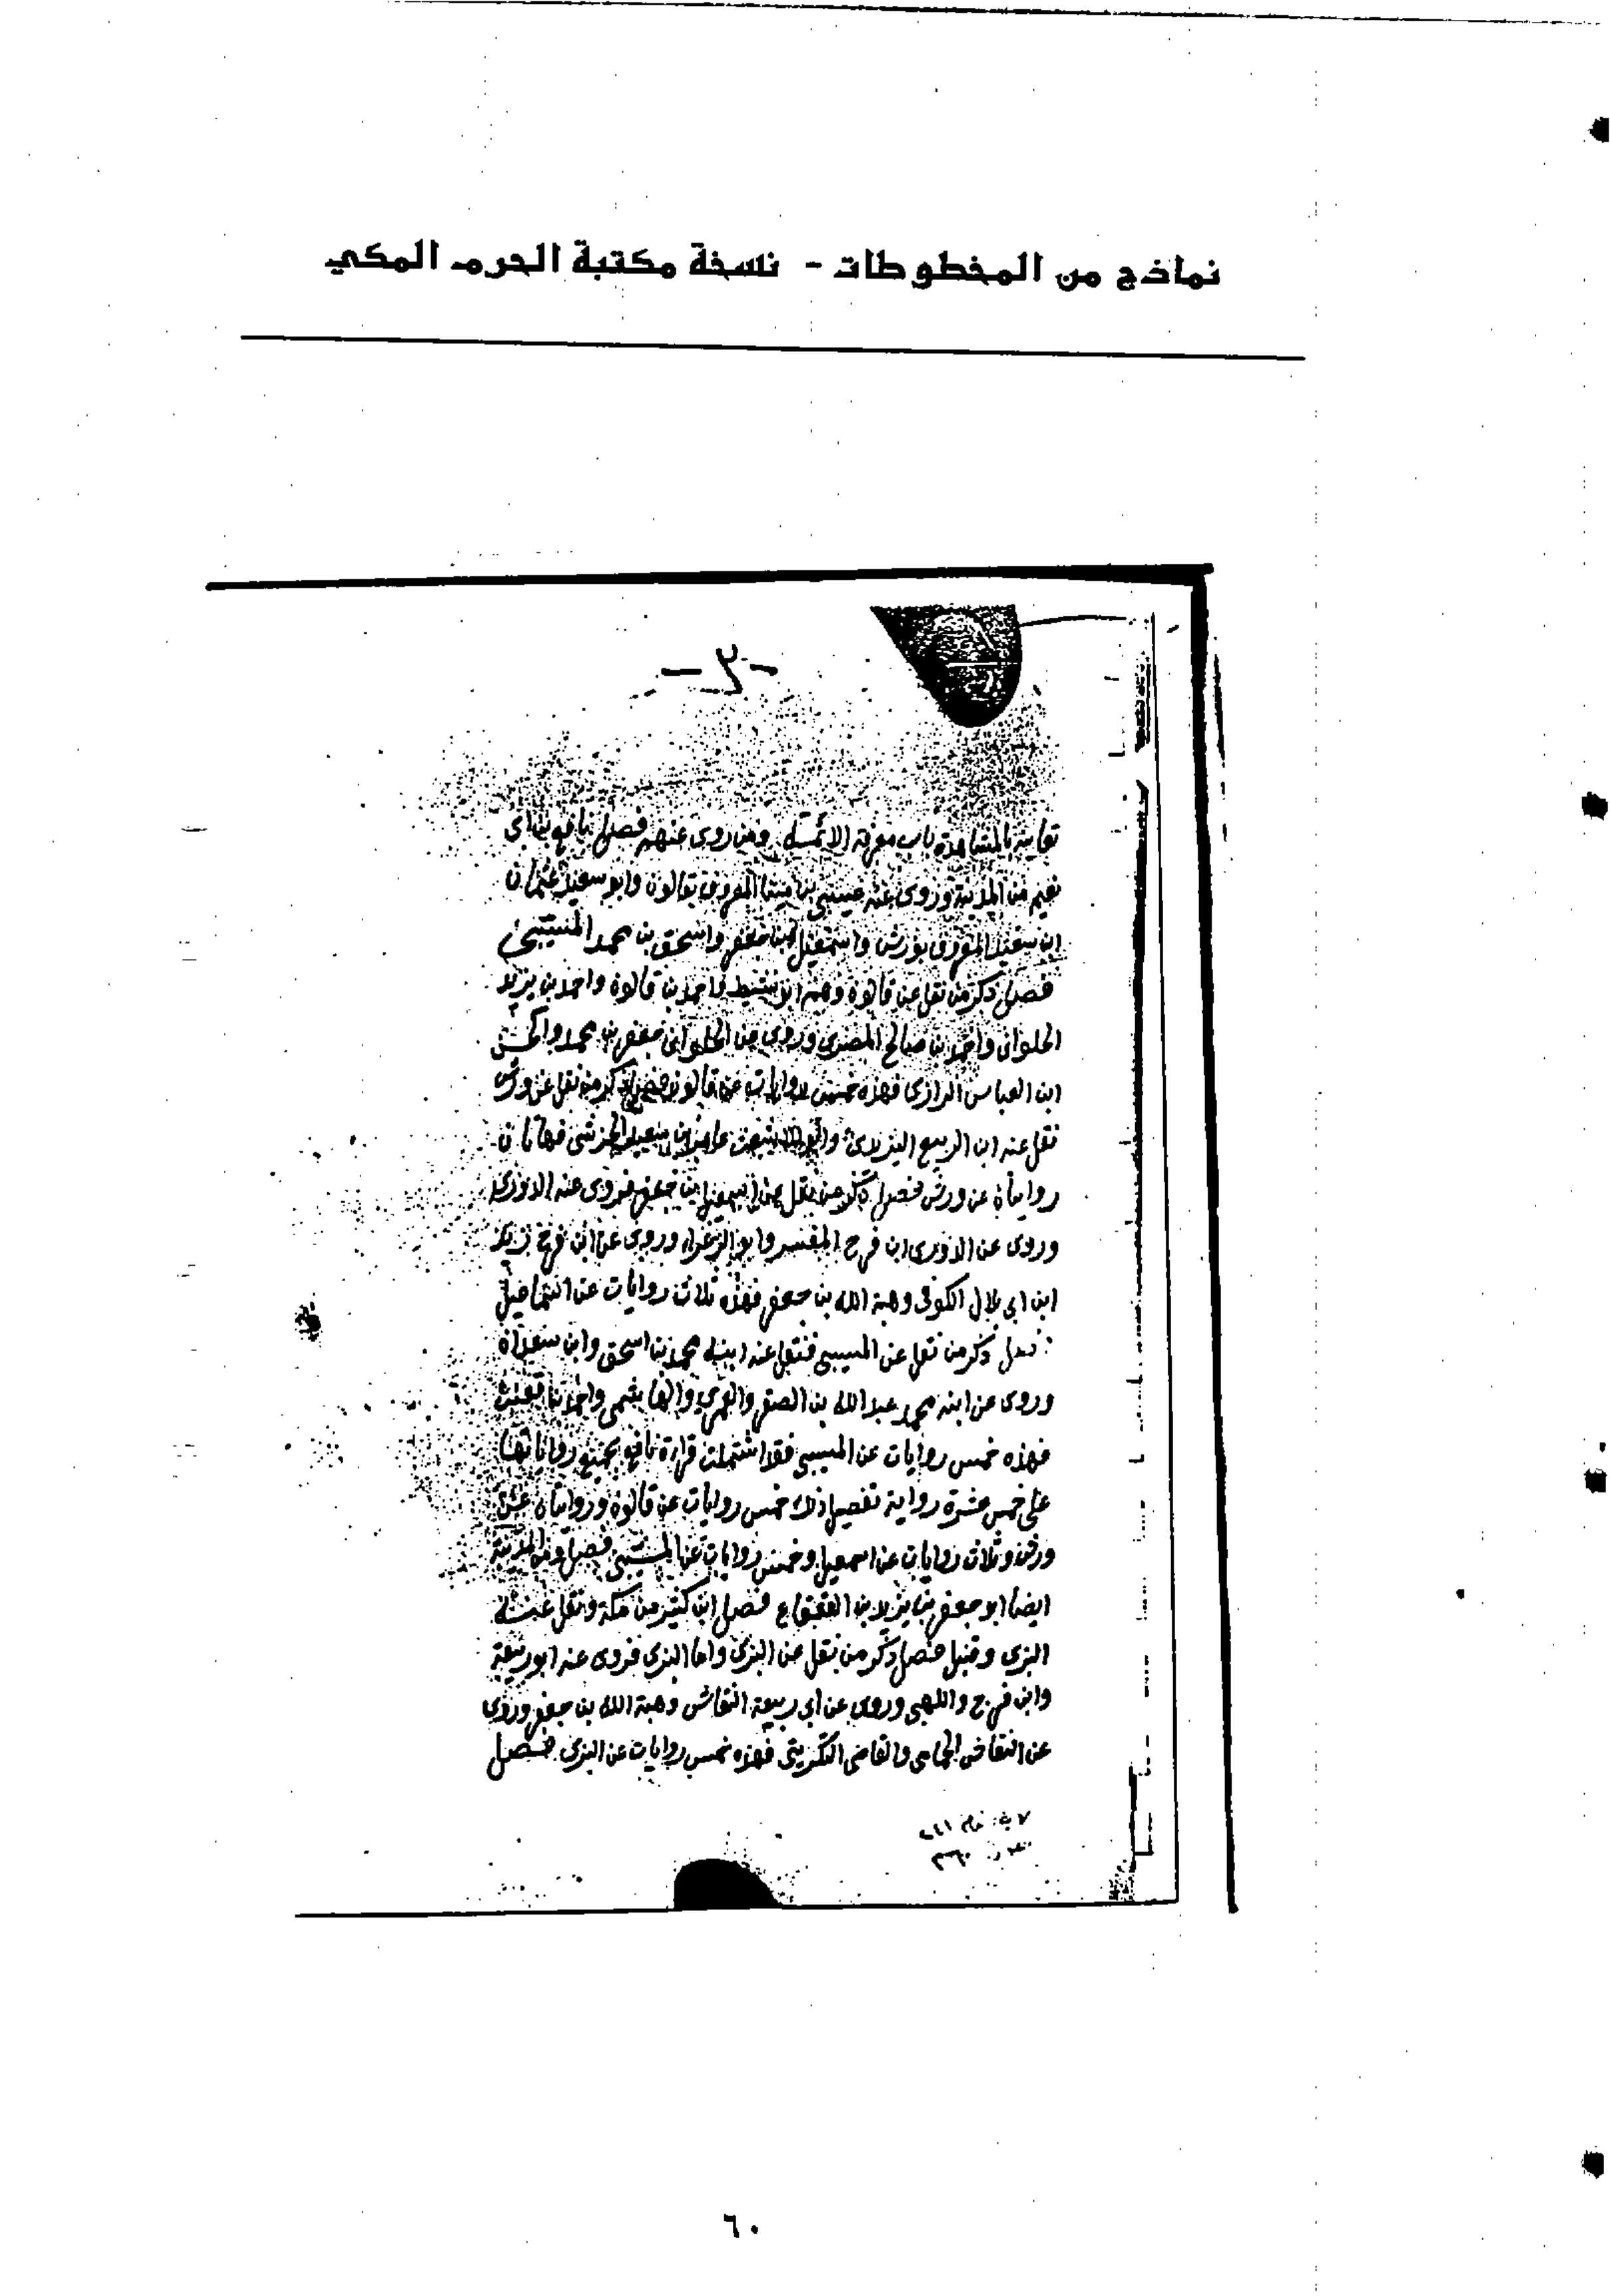 نماذج من المخطوطات - نسخة مكتبة الحرم المكي
باب معرفة الائمة ومن روى عنهم فصل نافع بن ابي
نعيم من المدينة وروى عنه عيسى بن مينا المعروف بقالون وابو سعيد عثمان
ابن سعيد المعروف بورش واسمعيل بن جعفر واسحق بن محمد المسيبي
فصل ذكر من نقل عن قالون وهم ابو نشيط واحمد بن قالون واحمد بن يزيد
الحلواني واحمد بن صالح المصري وروى عن الحلواني جعفر بن محمد والحسن
ابن العباس الرازي فهذه خمس روايات عن قالون فصل ذكر من نقل عن ورش
نقل عنه ابن الربيع عامر بن سعيد الجرشي فهاتان
روايتان عن ورش فصل ذكر من نقل عن اسمعيل ابن جعفر فروى عنه الدوري
وروى عن الدوري ابن فرح المفسر وابو الزعراء وروى عن ابن فرح زيد
ابن ابي بلال الكوفي وهبة الله بن جعفر فهذه ثلاث روايات عن اسماعيل
فصل ذكر من نقل عن المسيبي فنقل عنه ابنه محمد بن اسحق وابن سعدان
وروى عن ابنه محمد عبد الله بن الصقر
فهذه خمس روايات عن المسيبي فقد اشتملت قراءة نافع بجميع رواياتها
على خمس عشرة رواية تفصيل ذلك خمس روايات عن قالون وروايتان عن
ورش وثلاث روايات عن اسمعيل وخمس روايات عن المسيبي فصل ومن المدينة
ايضا ابو جعفر بن يزيد بن القعقاع فصل ابن كثير من مكة ونقل عنه
البزي وقنبل فصل ذكر من نقل عن البزي واما البزي فروى عنه ابو ربيعة
وابن فرح واللهبي وروى عن ابي ربيعة النقاش وهبة الله بن جعفر وروى
عن النقاش الحمامي والقاضي التكريتي فهذه خمس روايات عن البزي فصل
٦٠